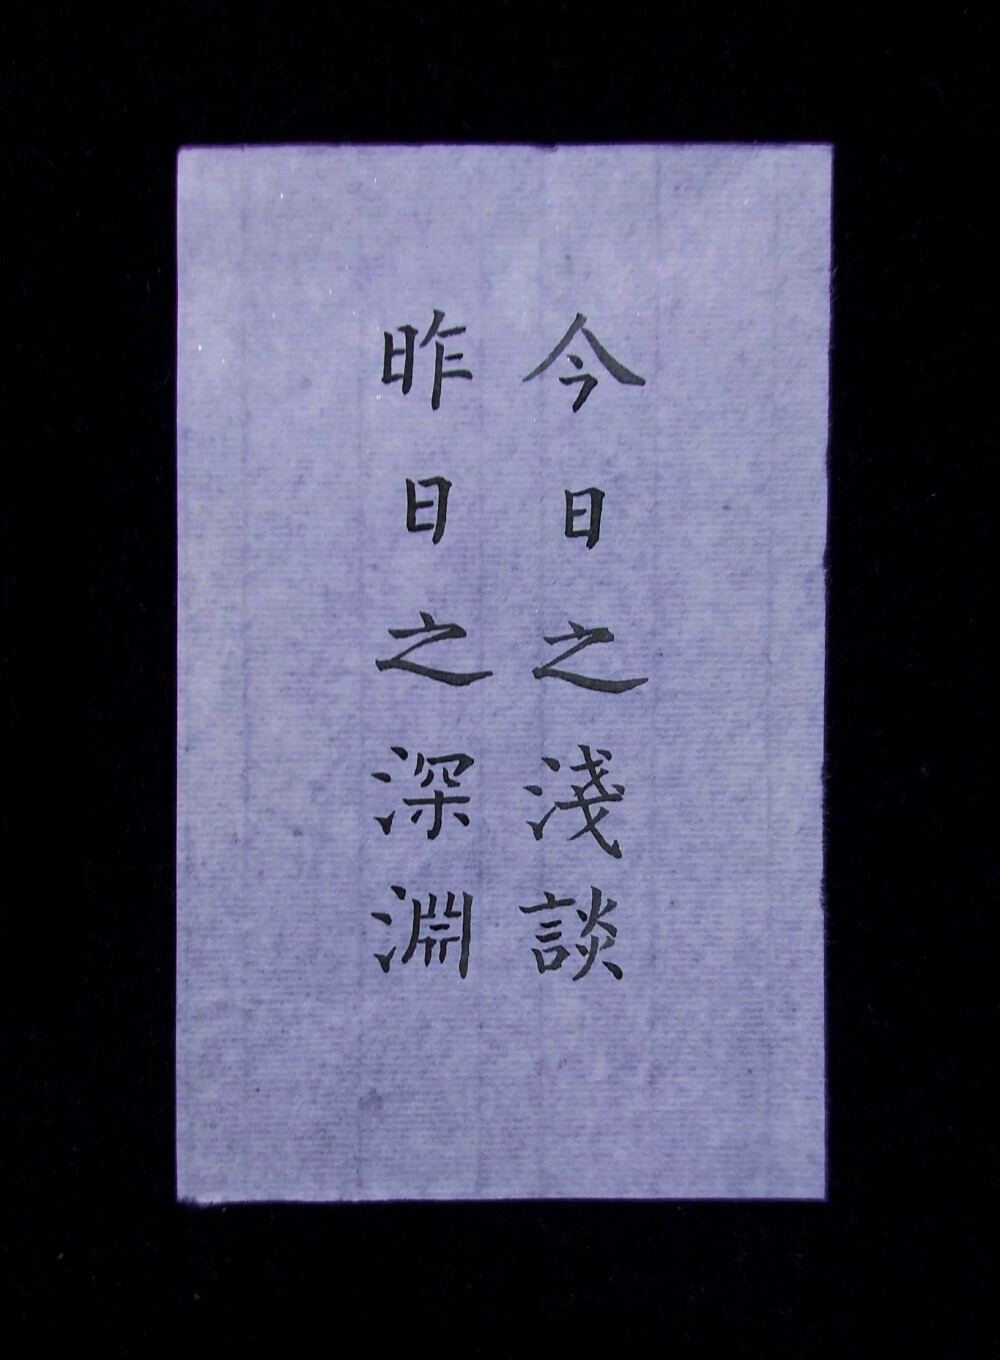 今日之淺談
昨日之深淵